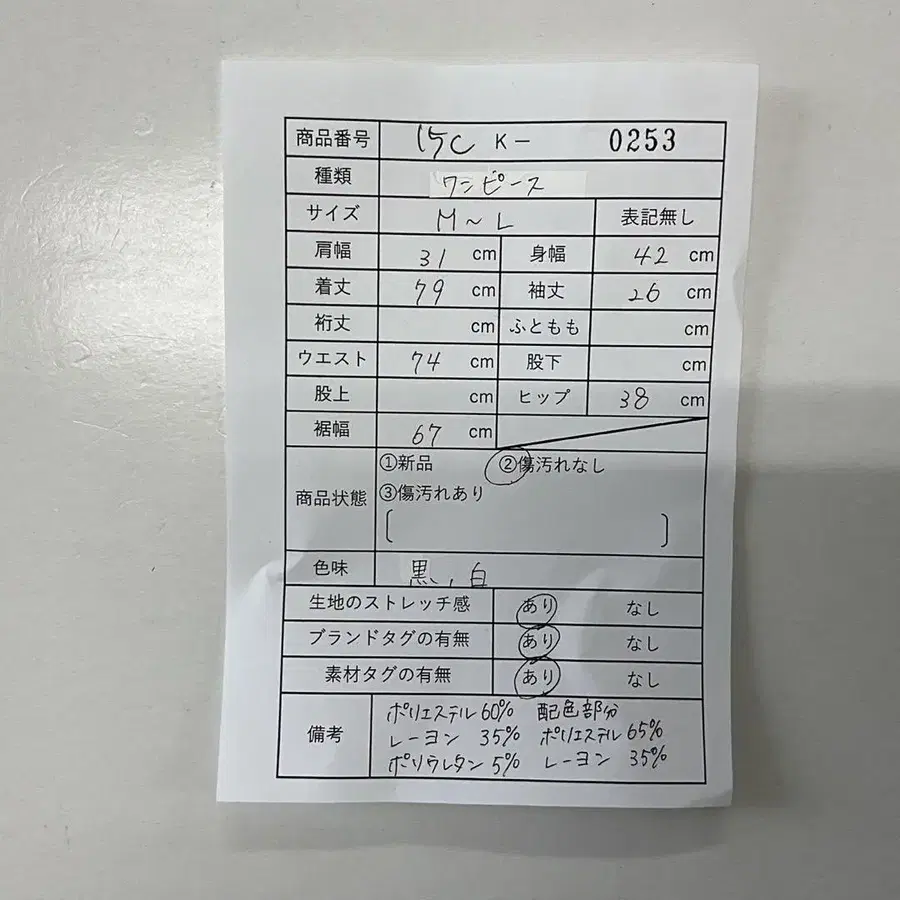 商品番号 15C K－ 0253
種類 ワンピース
サイズ M～L 表記無し
肩幅 31 cm 身幅 42 cm
着丈 79 cm 袖丈 26 cm
裄丈 cm ふともも cm
ウエスト 74 cm 股下 cm
股上 cm ヒップ 38 cm
裾幅 67 cm
商品状態 ①新品 ②傷汚れなし
③傷汚れあり
[ ]
色味 黒、白
生地のストレッチ感 あり なし
ブランドタグの有無 あり なし
素材タグの有無 あり なし
備考 ポリエステル60% 配色部分
レーヨン 35% ポリエステル65%
ポリウレタン 5% レーヨン 35%